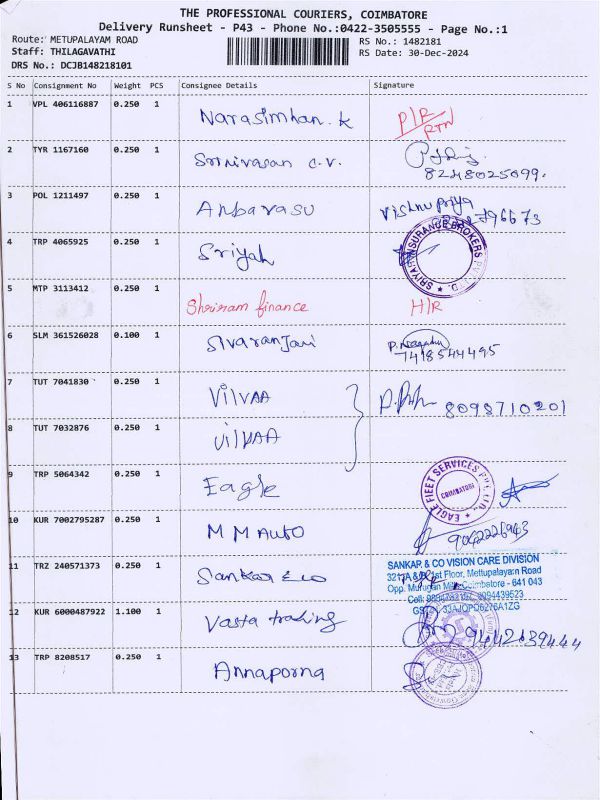 THE PROFESSIONAL COURIERS, COIMBATORE
Delivery Runsheet - P43 - Phone No.:0422-3505555 - Page No.:1
Route: METUPALAYAM ROAD RS No.: 1482181
Staff: THILAGAVATHI RS Date: 30-Dec-2024
DRS No.: DCJB148218101
S No Consignment No Weight PCS Consignee Details Signature
1 VPL 406116887 0.250 1 Narasimhan. K P/R RTN
2 TYR 1167160 0.250 1 Srinivasan C.V.
8248025099.
3 POL 1211497 0.250 1 Anbarasu Vishnu Priya
4 TRP 4065925 0.250 1 Sriyah SRIYAH INSURANCE BROKERS PVT. LTD.
5 MTP 3113412 0.250 1 Shriram finance H/R
6 SLM 361526028 0.100 1 Sivaranjani
7418544495
7 TUT 7041830 0.250 1 VilVAA 8098710201
8 TUT 7032876 0.250 1 VilVAA
9 TRP 5064342 0.250 1 Eagle EAGLE FLEET SERVICES PVT. LTD., COIMBATORE
10 KUR 7002795287 0.250 1 M M Auto 9042226963
11 TRZ 240571373 0.250 1 Sankar & co SANKAR & CO VISION CARE DIVISION
1st Floor, Mettupalayam Road
Opp. Murugan Mills, Coimbatore - 641 043
Cell: 8094439523
12 KUR 6000487922 1.100 1 Vasta trading 9442639444
13 TRP 8208517 0.250 1 Annaporna